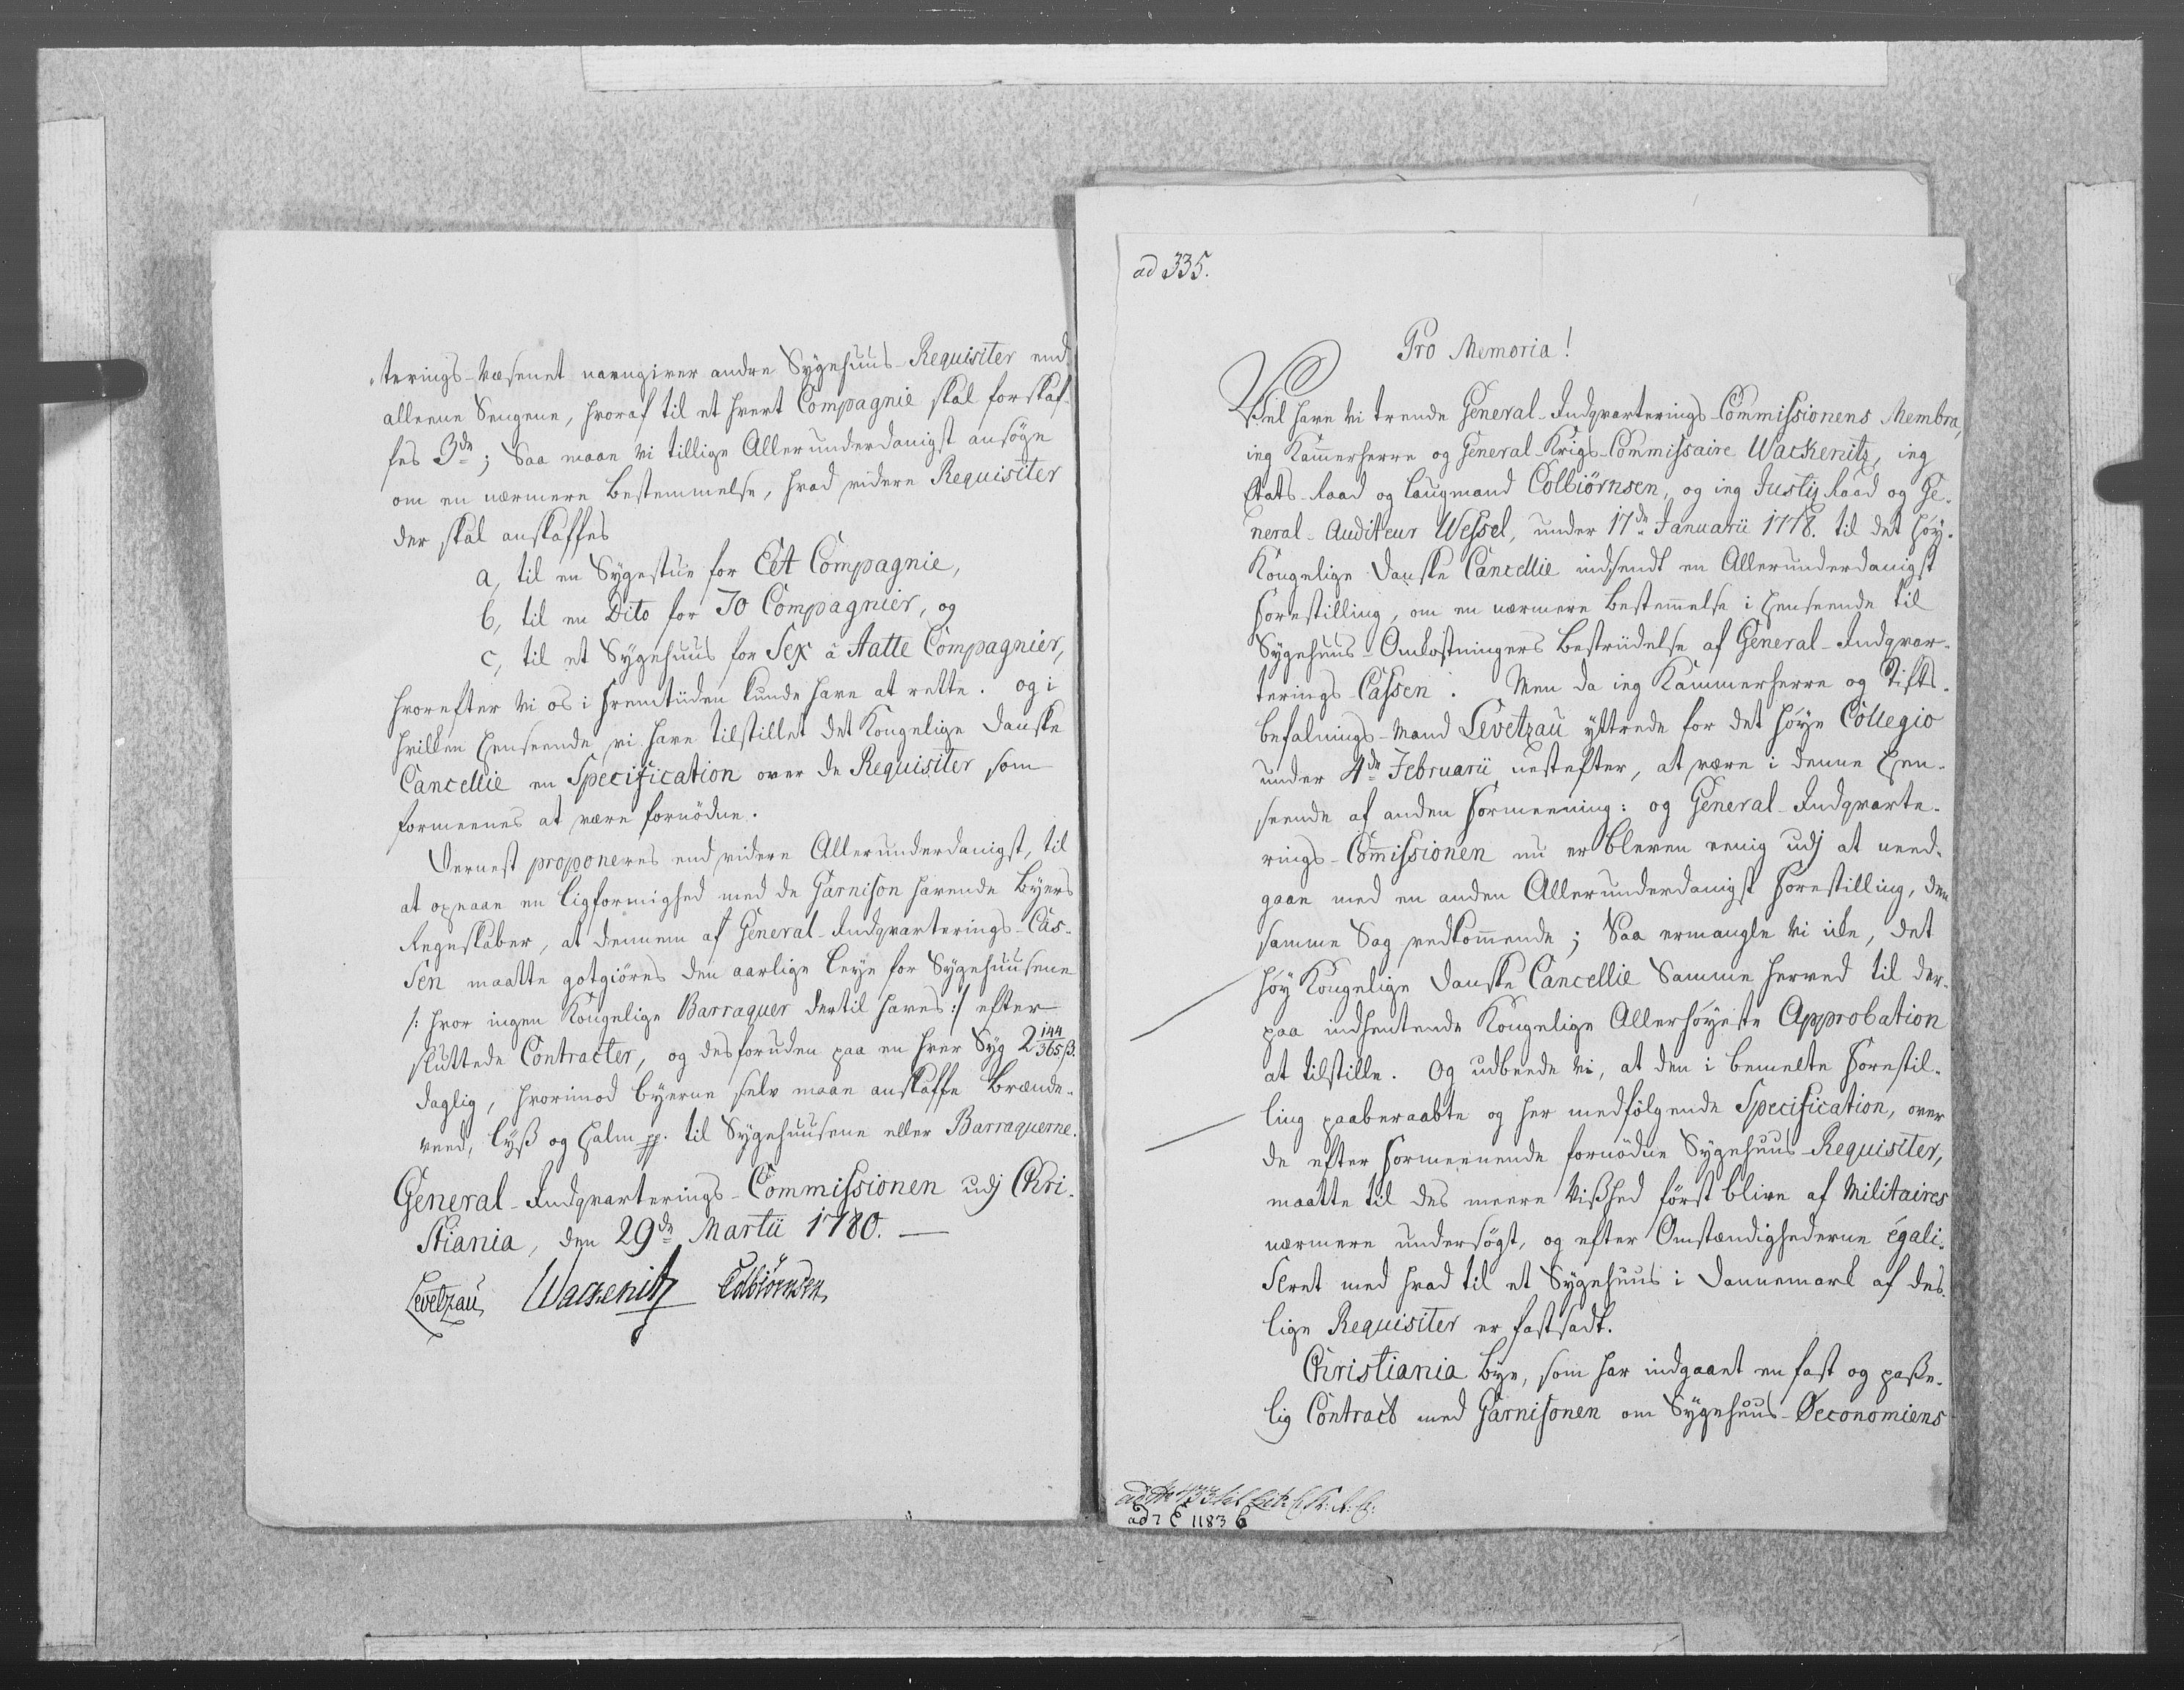 terings-Væsenet navngiver andre Sygehuus-Requisiter end
alleene Sengene, hvoraf til et hvert Compagnie skal forskaf-
fes 3de; Saa maae Vi tillige Allerunderdanigst ansøge
om en nærmere Bestemmelse, hvad videre Requisiter
der skal anskaffes
a, til en Sygestue for Eet Compagnie,
b, til en Dito for To Compagnier, og
c, til et Sygehuus for Sex â Aatte Compagnier,
hvorefter Vi os i Fremtiiden kunde have at rette. og i
hvilken Henseende vi have tilstillet det Kongelige Danske
Cancellie en Specification over de Requisiter som
formeenes at være fornødne.
Dernest proponeres end videre Allerunderdanigst, til
at opnaae en Ligformighed med de Garnison havende Byers
Regnskaber, at dennem af General-Indqvarterings-Cas-
sen maatte gotgiøres den aarlige Leye for Sygehuusene
/: hvor ingen Kongelige Barraquer dertil haves :/ efter
sluttede Contracter, og desforuden paa en hver Syg 2 144/365 ß.
daglig, hvorimod Byerne selv maae anskaffe Brænde-
veed, Lyß og Halm pp. til Sygehuusene eller Barraquerne.
General-Indqvarterings-Commissionen udj Chri-
stiania, den 29de Martii 1780.
Levetzau Wackenitz Colbiørnsen
ad 335.
Pro Memoria!
Vel have Vi trende General-Indqvarterings-Commissionens Membra,
ieg Kammerherre og General-Krigs-Commissaire Wackenitz, ieg
Etats-Raad og Laugmand Colbiørnsen, og ieg Justiz Raad og Ge-
neral-Auditeur Wessel, under 17de Januarii 1778. til det Høy-
Kongelige Danske Cancellie indsendt en Allerunderdanigst
Forestilling, om en nærmere Bestemmelse i Henseende til
Sygehuus-Omkostningers Bestriidelse af General-Indqvar-
terings-Cassen. Men da ieg Kammerherre og Stifts-
befalnings-Mand Levetzau yttrede for det høye Collegio
under 4de Februarii nestefter, at være i denne Hen-
seende af anden Formeening: og General-Indqvarte-
rings-Commissionen nu er bleven eenig udj at need-
gaae med en anden Allerunderdanigst Forestilling, den
samme Sag vedkommende; Saa ermangle Vi icke, det
Høy Kongelige Danske Cancellie Samme herved til der-
paa indhentende Kongelige Allerhøyeste Approbation
at tilstille. Og udbeede Vi, at den i bemelte Forestil-
ling paaberaabte og her medfølgende Specification, over
de efter Formeenende fornødne Sygehuus-Requisiter,
maatte til des meere Vißhed først blive af Militaires
nærmere undersøgt, og efter Omstændighederne égali-
seret med hvad til et Sygehuus i Dannemark af des-
lige Requisiter er fastsadt.
Christiania Bye, som har indgaaet en fast og paße-
lig Contract med Garnisonen om Sygehuus-Øeconomiens
ad 7 E 1183 6